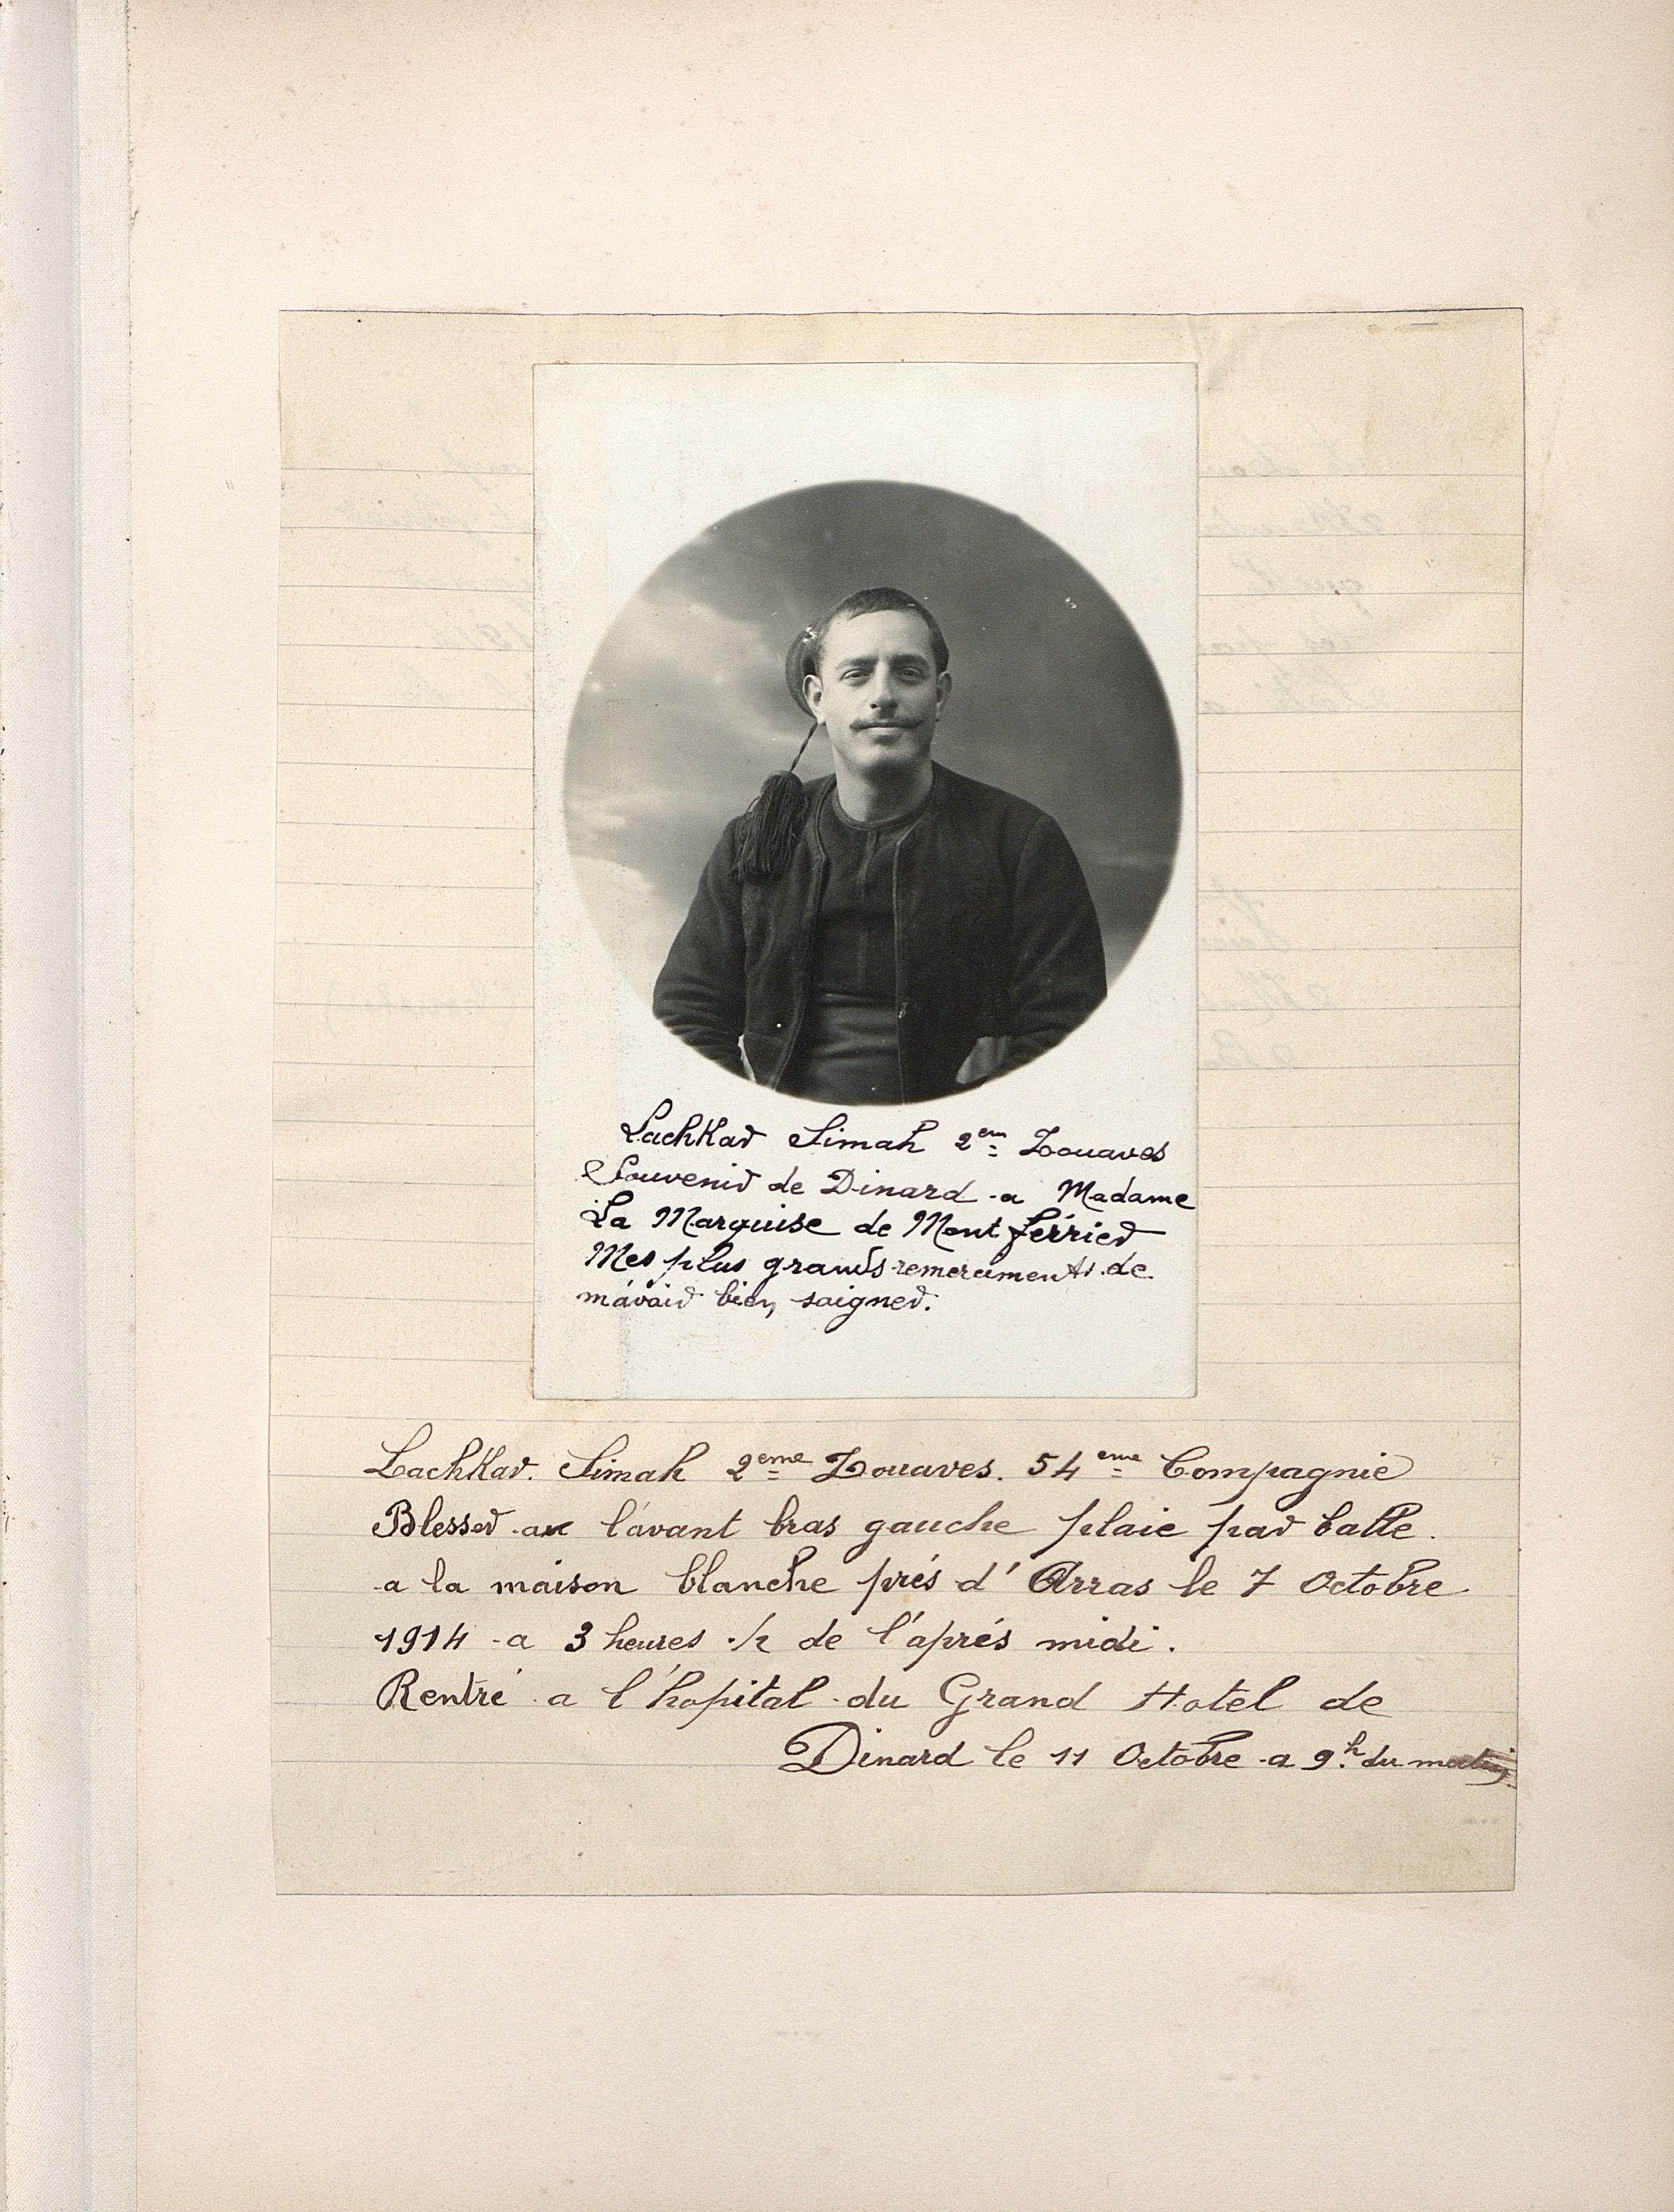 Lachkar Simah 2em Zouaves
Souvenir de Dinard a Madame
La Marquise de Montferrier
Mes plus grands remerciments de
m'avair bien soigner.
Lachkar. Simah 2eme Zouaves. 54eme Compagnie
Blesser au l'avant bras gauche plaie par balle.
a la maison blanche prés d'Arras le 7 Octobre
1914 a 3 heures ½ de l'aprés midi.
Rentré a l'hopital du Grand Hotel de
Dinard le 11 Octobre a 9h. du matin